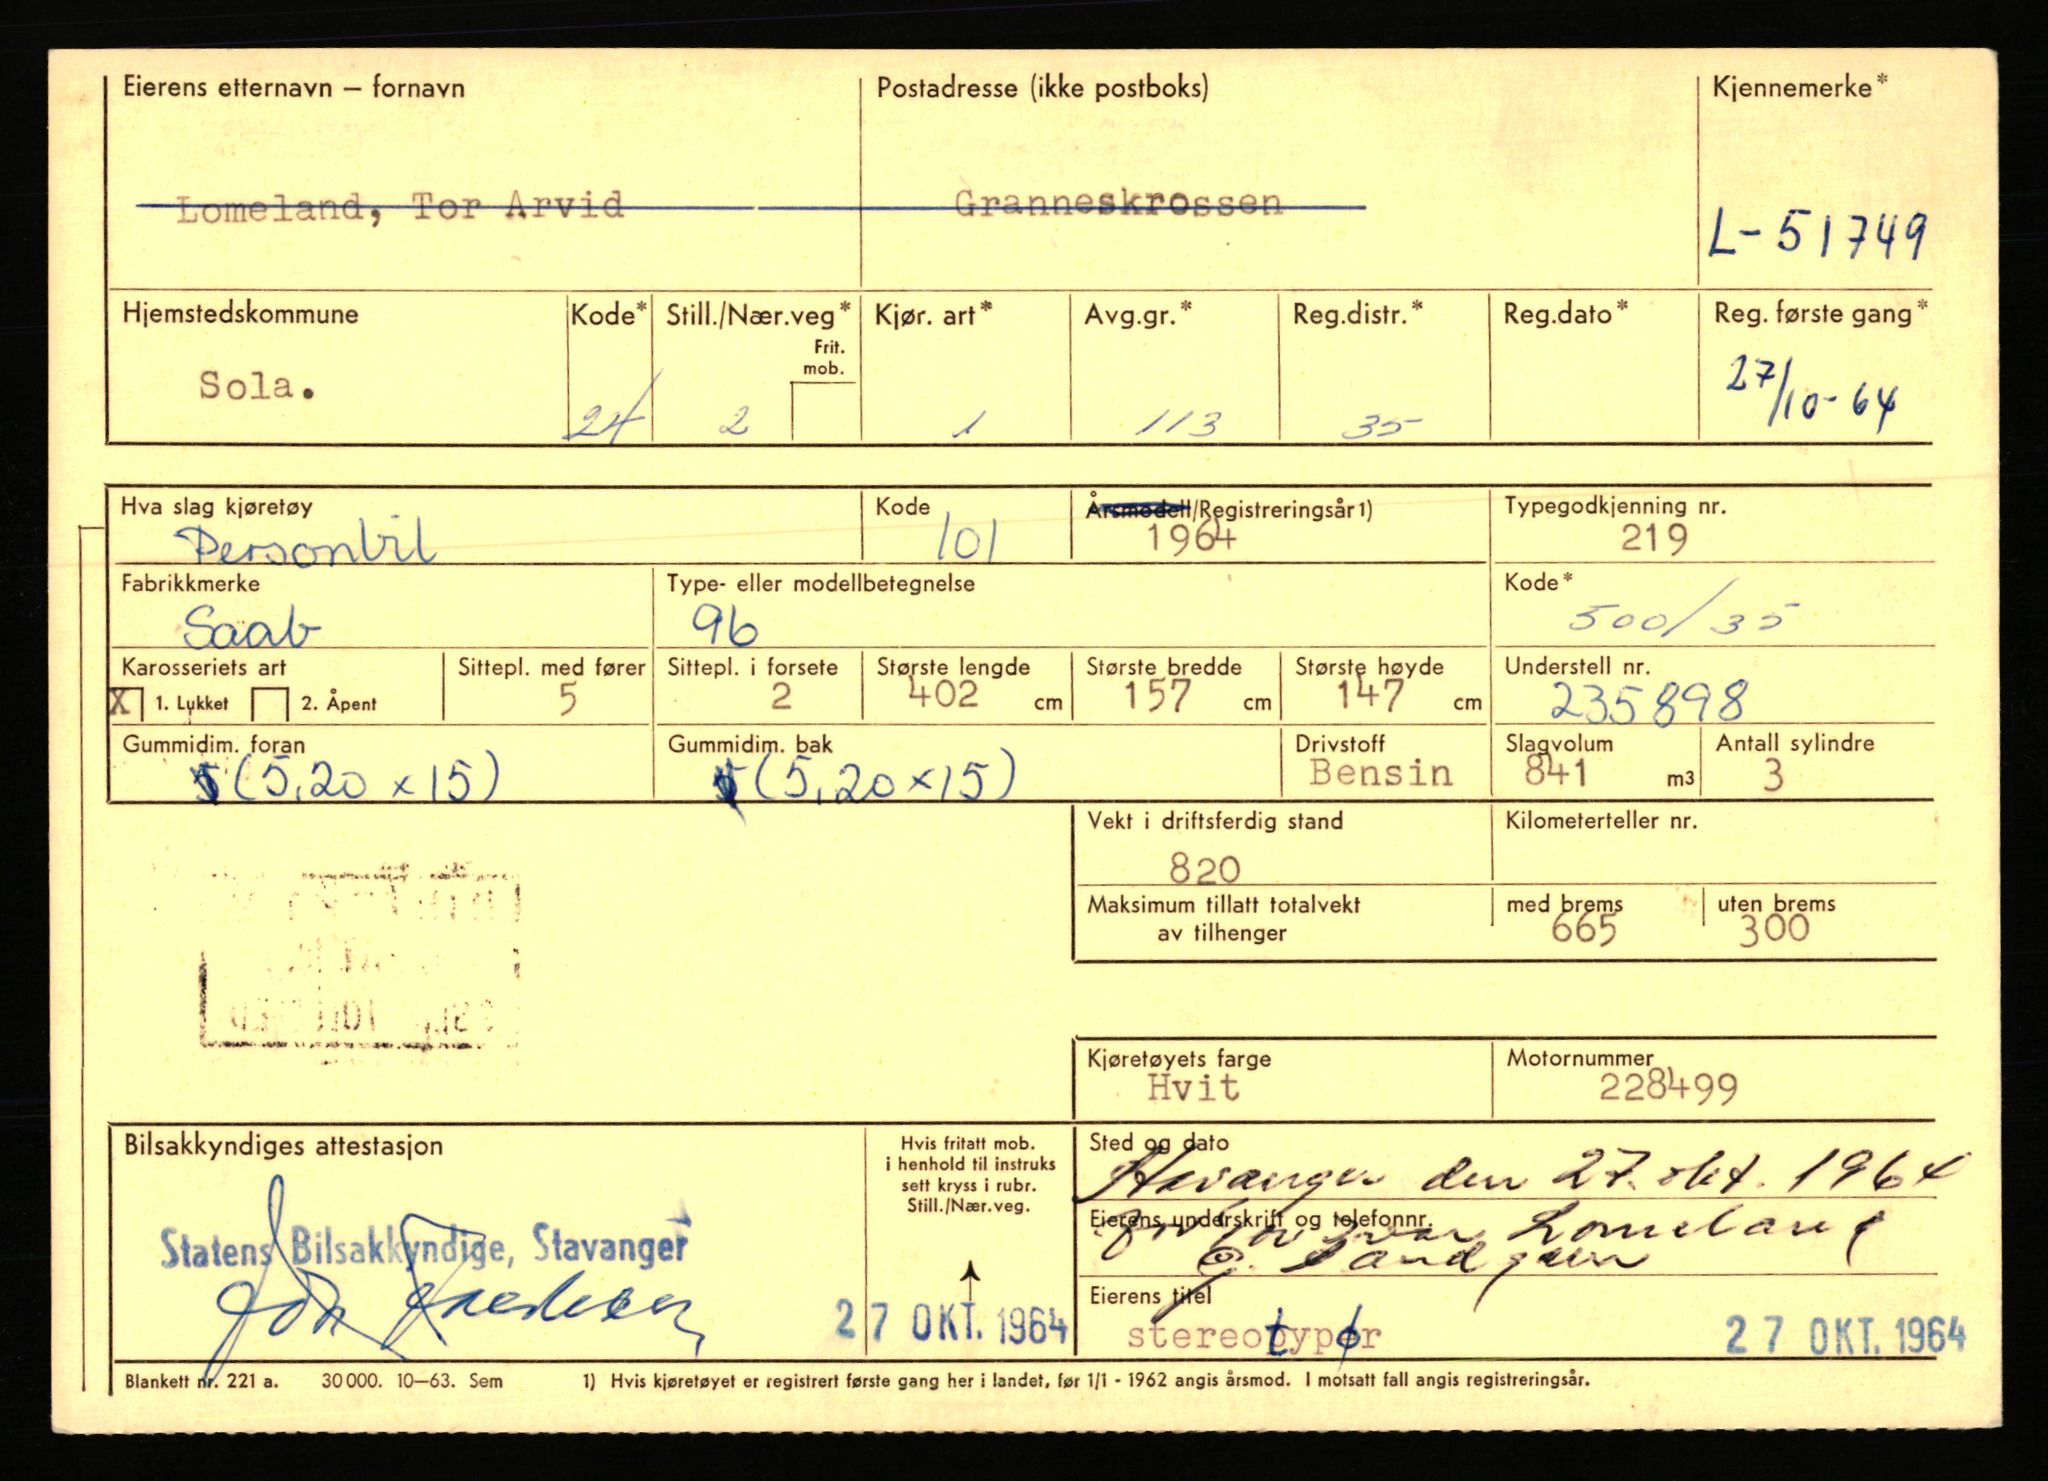 Eierens etternavn – fornavn Postadresse (ikke postboks) Kjennemerke*
Lomeland, Tor Arvid Granneskrossen
L-51749
Hjemstedskommune Kode* Still./Nær.veg* Kjør. art* Avg.gr.* Reg.distr.* Reg.dato* Reg. første gang*
Frit.
mob.
Sola. 24 2 1 113 35 27/10-64
Hva slag kjøretøy Kode Årsmodell/Registreringsår 1) Typegodkjenning nr.
Personbil 101 1964 219
Fabrikkmerke Type- eller modellbetegnelse Kode*
Saab 96 500/35
Karosseriets art Sittepl. med fører Sittepl. i forsete Største lengde Største bredde Største høyde Understell nr.
X 1. Lukket 2. Åpent 5 2 402 cm 157 cm 147 cm 235898
Gummidim. foran Gummidim. bak Drivstoff Slagvolum Antall sylindre
(5,20 x 15) (5,20 x 15) Bensin 841 m3 3
Vekt i driftsferdig stand Kilometerteller nr.
820
Maksimum tillatt totalvekt med brems uten brems
av tilhenger 665 300
Kjøretøyets farge Motornummer
Hvit 228499
Bilsakkyndiges attestasjon Hvis fritatt mob. Sted og dato
i henhold til instruks
sett kryss i rubr.
Still./Nær.veg.
Stavanger den 27. okt. 1964
Eierens underskrift og telefonnr.
for Tor Lomeland
Statens Bilsakkyndige, Stavanger
27 OKT. 1964
Eierens titel
stereotypør 27 OKT. 1964
Blankett nr. 221 a. 30000. 10–63. Sem 1) Hvis kjøretøyet er registrert første gang her i landet, før 1/1 - 1962 angis årsmod. I motsatt fall angis registreringsår.